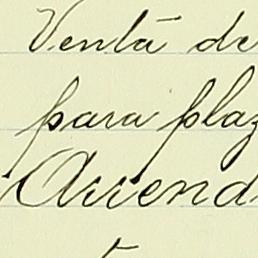 Venta de
para plaz
Arrend